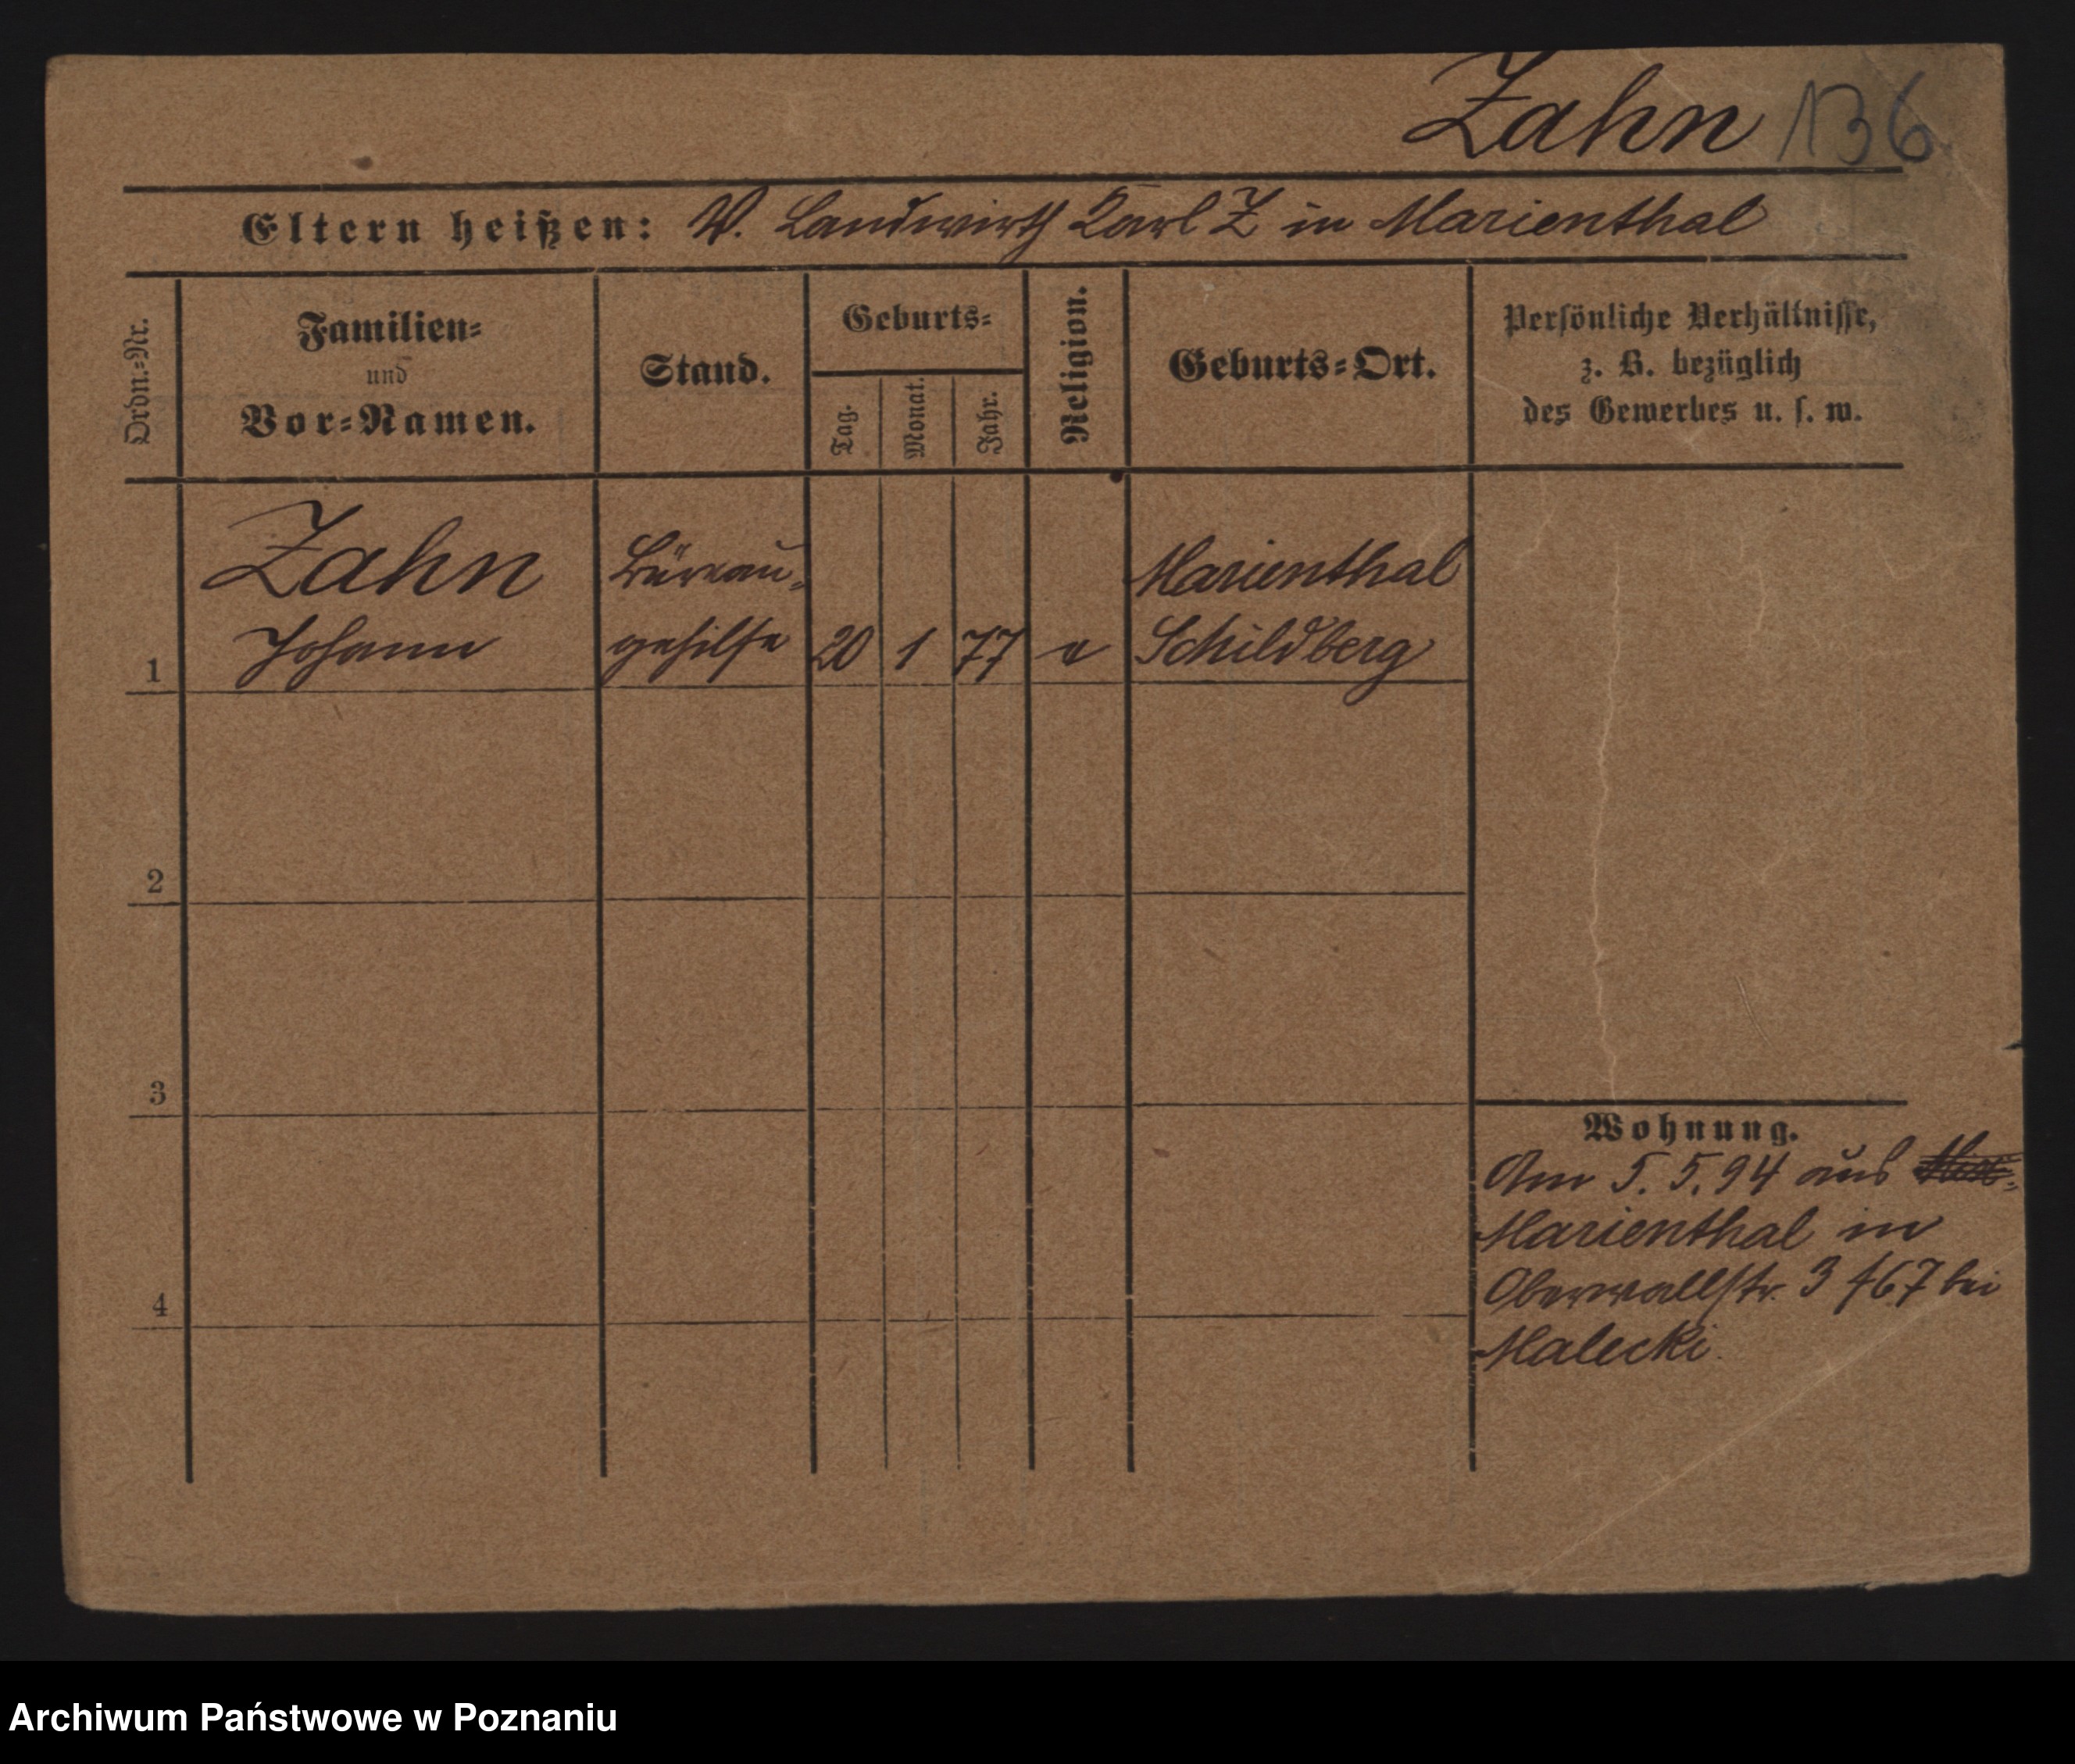 Zahn 136
Eltern heißen: V. Landwirth Karl Z in Marienthal
Ordn.-Nr.
Familien-
und
Vor-Namen.
Stand.
Geburts-
Tag.
Monat.
Jahr.
Religion.
Geburts-Ort.
Persönliche Verhältnisse,
z. B. bezüglich
des Gewerbes u. s. w.
Zahn Büreau- Marienthal
1 Johann gehilfe 20 1 77 e Schildberg
2
3
4
Wohnung.
Am 5.5.94 aus
Marienthal in
Oberwallstr. 3 467 bei
Malecki.
Archiwum Państwowe w Poznaniu